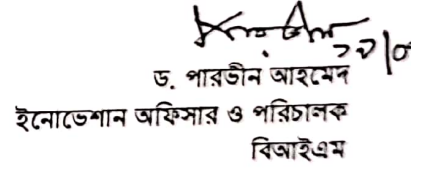 ড. পারভীন আহমেদ
ইনোভেশান অফিসার ও পরিচালক
বিআইএম